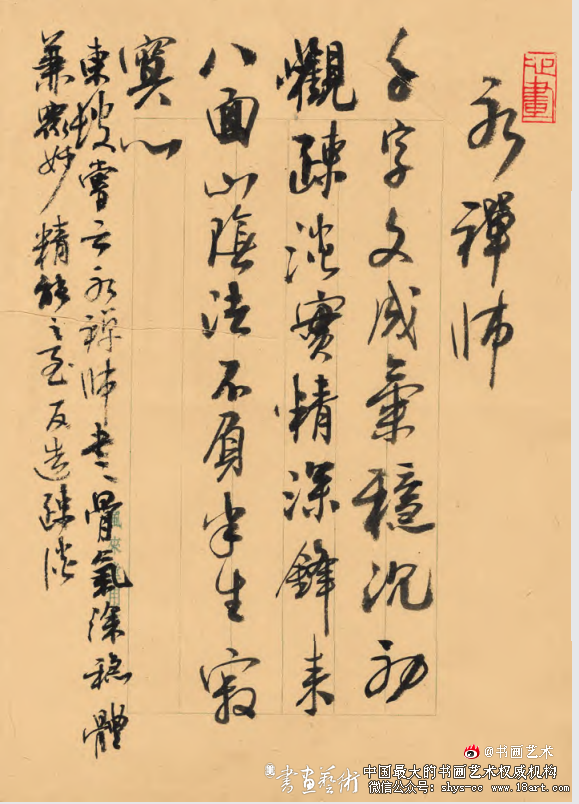 永禪師
千字文成氣穩沉初
觀疎淡實精深鋒來
八面山陰法不負半生寂
寞心
東坡嘗云永禪師書骨氣深穩體
兼眾妙精能之至反造疎淡
@书画艺术
書畫藝術
中国最大的书画艺术权威机构
微信公众号: shys-cc www.18art.com